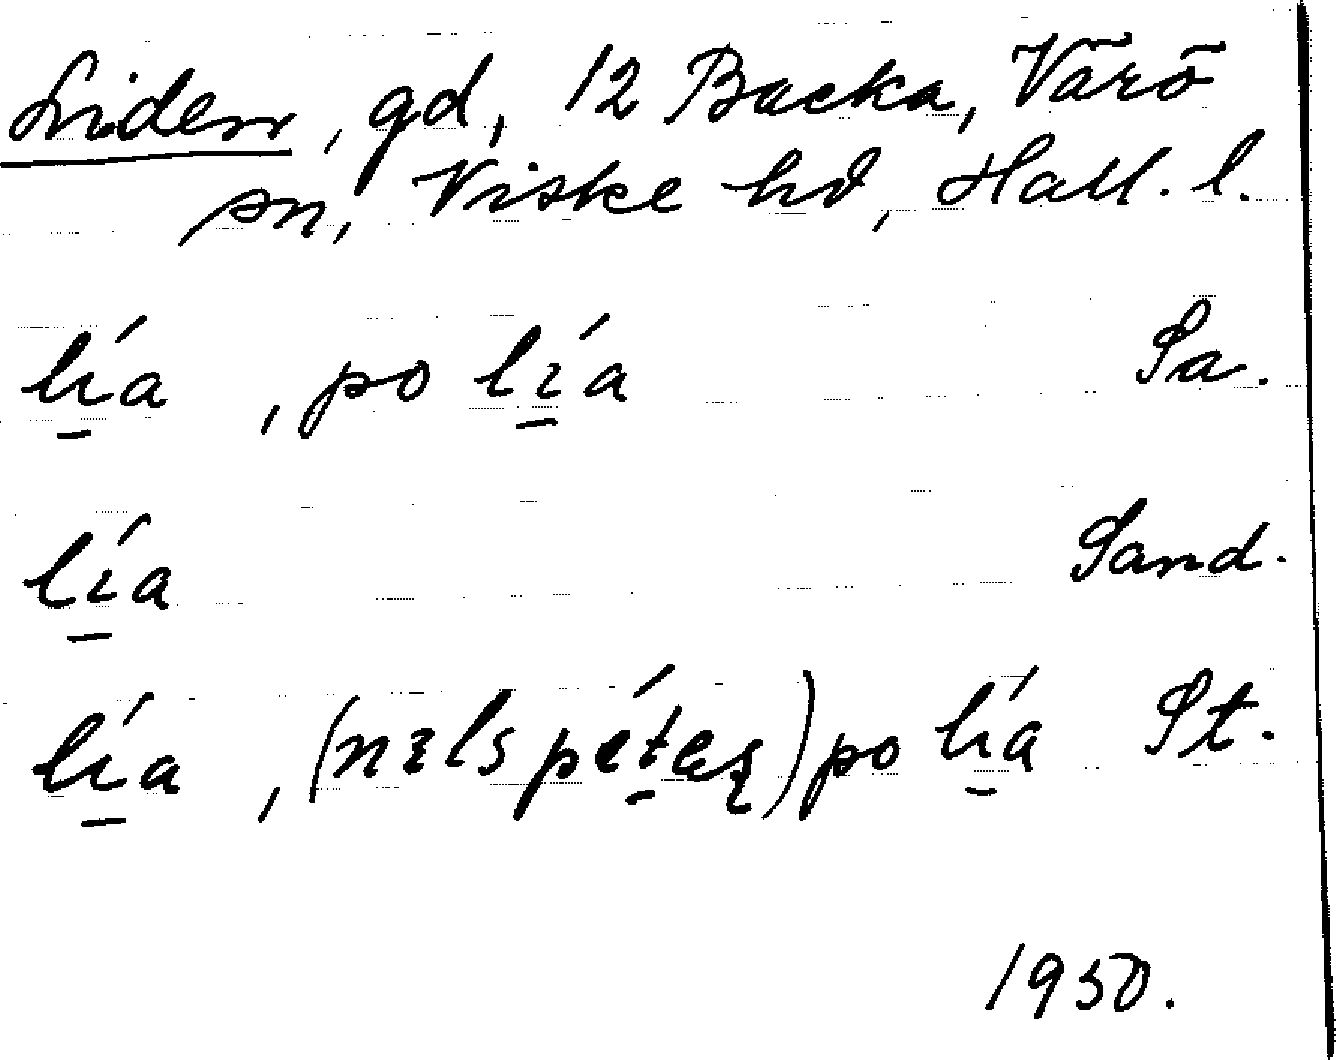 Liden, gd, 12 Backa, Värö
sn, Viske hd, Hall. l.
lí̱a , po lí̱a Sa.
lí̱a Sand.
lí̱a , (nɪls péṯaʀ) po lí̱a St.
1950.